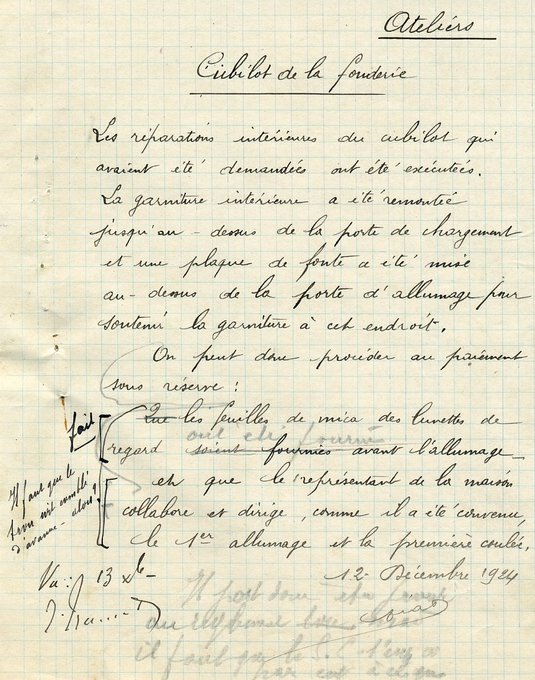 Ateliers
Cubilot de la fonderie
Les réparations intérieures du cubilot qui
avaient été demandées ont été exécutées.
La garniture intérieure a été remontée
jusqu'au-dessus de la porte de chargement
et une plaque de fonte a été mise
au-dessus de la porte d'allumage pour
soutenir la garniture à cet endroit.
On peut donc procéder au paiement
sous réserve :
fait
Que les feuilles de mica des lunettes de
ont été fournies
regard soient fournies avant l'allumage
Il faut que le
et que le représentant de la maison
collabore et dirige, comme il a été convenu,
d'avance
le 1er allumage et la première coulée.
Vu : 13 Xbre
12 Décembre 1924
Il faut donc
il faut que le